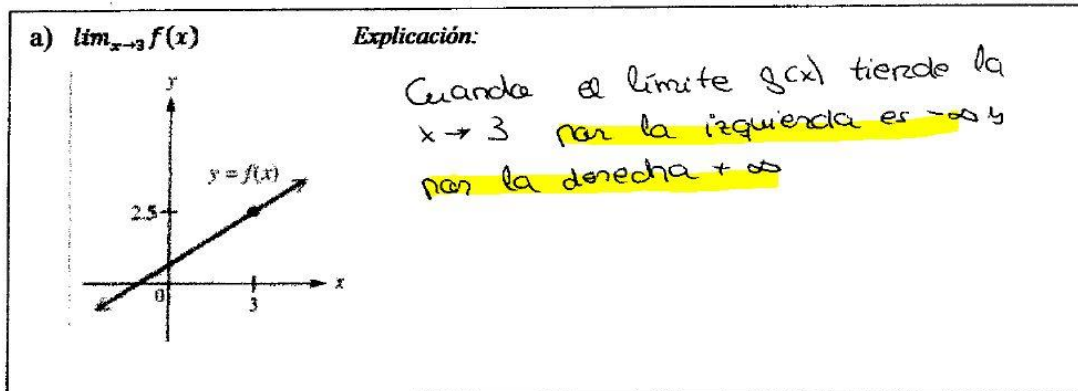 a) lim_{x→3} f(x)
Explicación:
Cuando el límite f(x) tiende la
x → 3 por la izquierda es -∞ y
por la derecha + ∞
y
y = f(x)
2.5
0
3
x